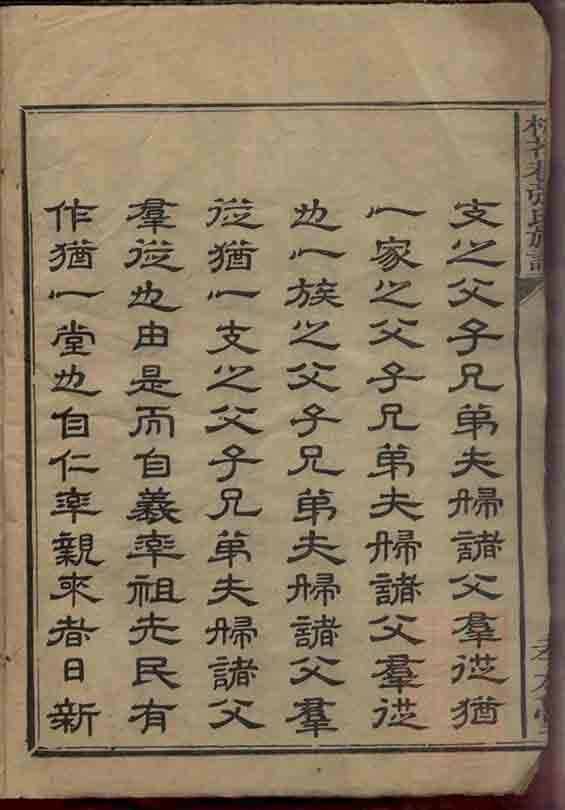 張氏族譜
孝友堂
支之父子兄弟夫婦諸父羣從猶
一家之父子兄弟夫婦諸父羣從
也一族之父子兄弟夫婦諸父羣
從猶一支之父子兄弟夫婦諸父
羣從也由是而自義率祖先民有
作猶一堂也自仁率親來者日新